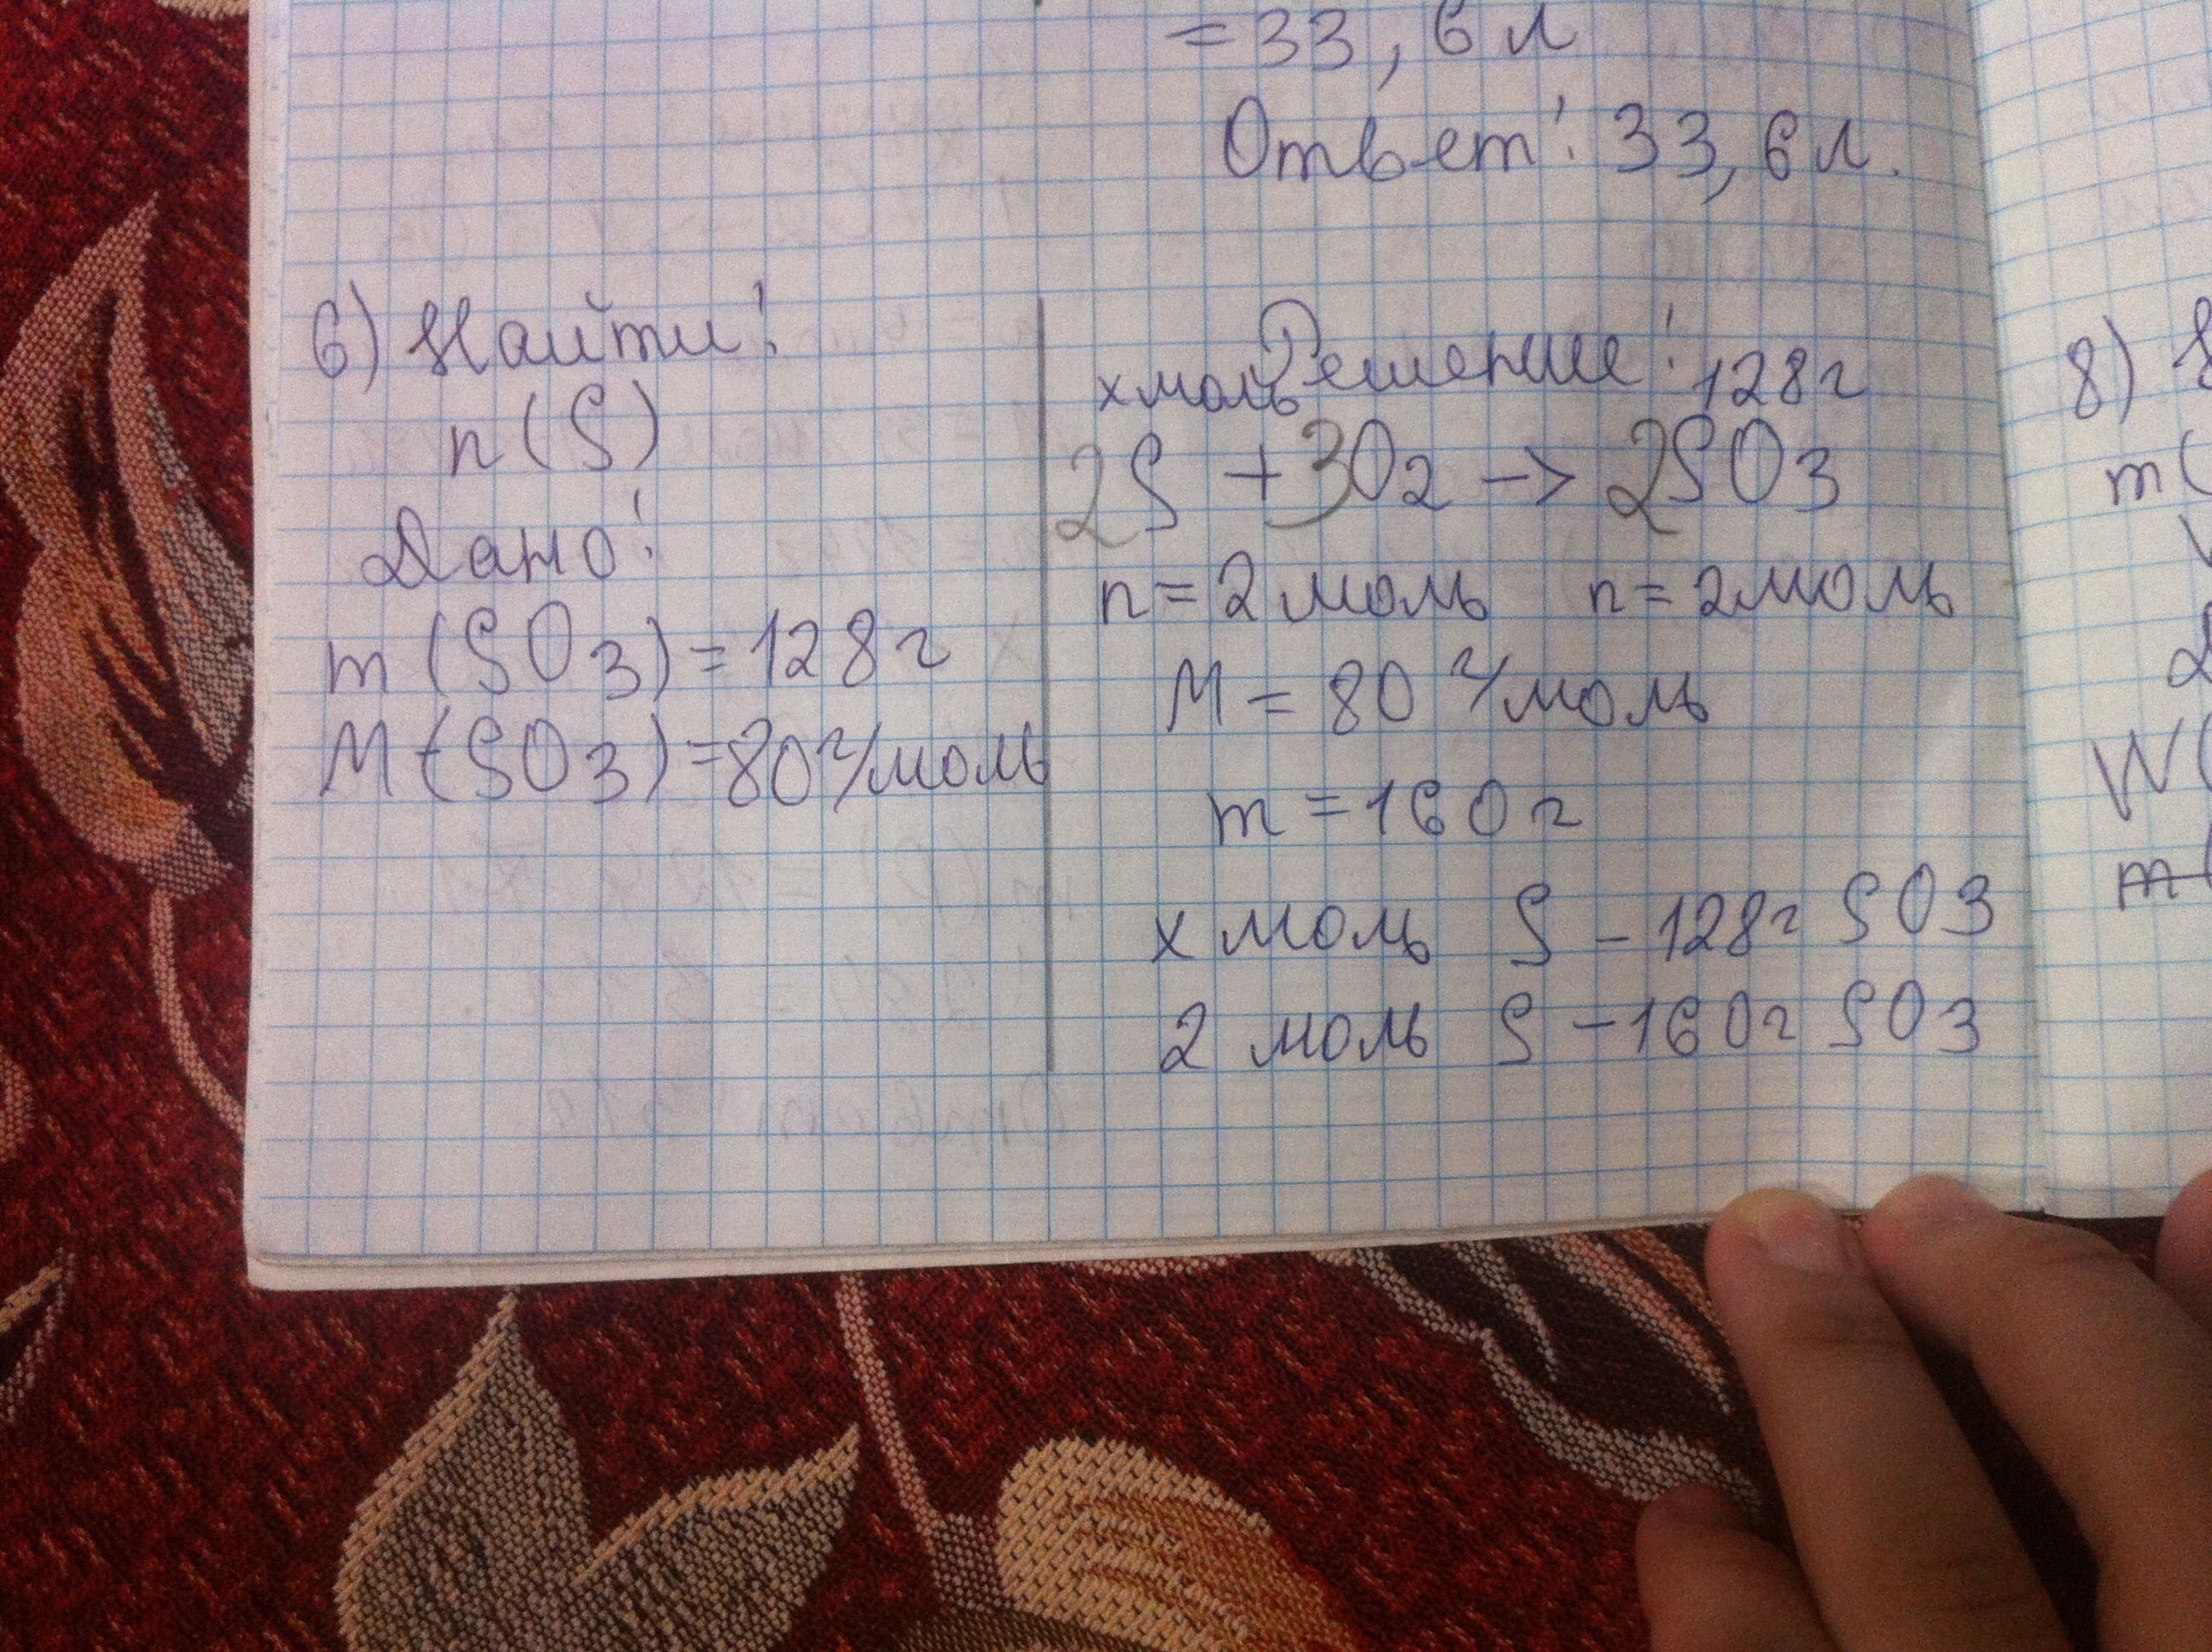 = 33,6 л
Ответ: 33,6 л.
6) Найти:
n(S)
Дано:
m(SO3) = 128 г
M(SO3) = 80 г/моль
Решение:
x моль 128 г
2S + 3O2 -> 2SO3
n = 2 моль n = 2 моль
M = 80 г/моль
m = 160 г
x моль S - 128 г SO3
2 моль S - 160 г SO3
8)
m(
W(
m(